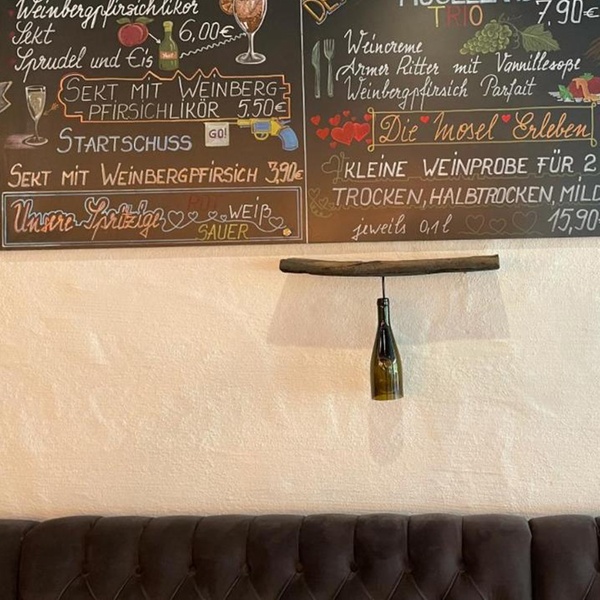 Weinbergpfirsichlikör
Sekt 6,00€
Sprudel und Eis
SEKT MIT WEINBERG-
PFIRSICHLIKÖR 5.50€
STARTSCHUSS GO!
SEKT MIT WEINBERGPFIRSICH 3,90€
Unsere Spritzige ROT WEIß
SAUER
TRIO 7,90€
Weincreme
Armer Ritter mit Vannillesoße
Weinbergpfirsich Parfait
Die Mosel Erleben
KLEINE WEINPROBE FÜR 2
TROCKEN, HALBTROCKEN, MILD
jeweils 0,1 l 15,90